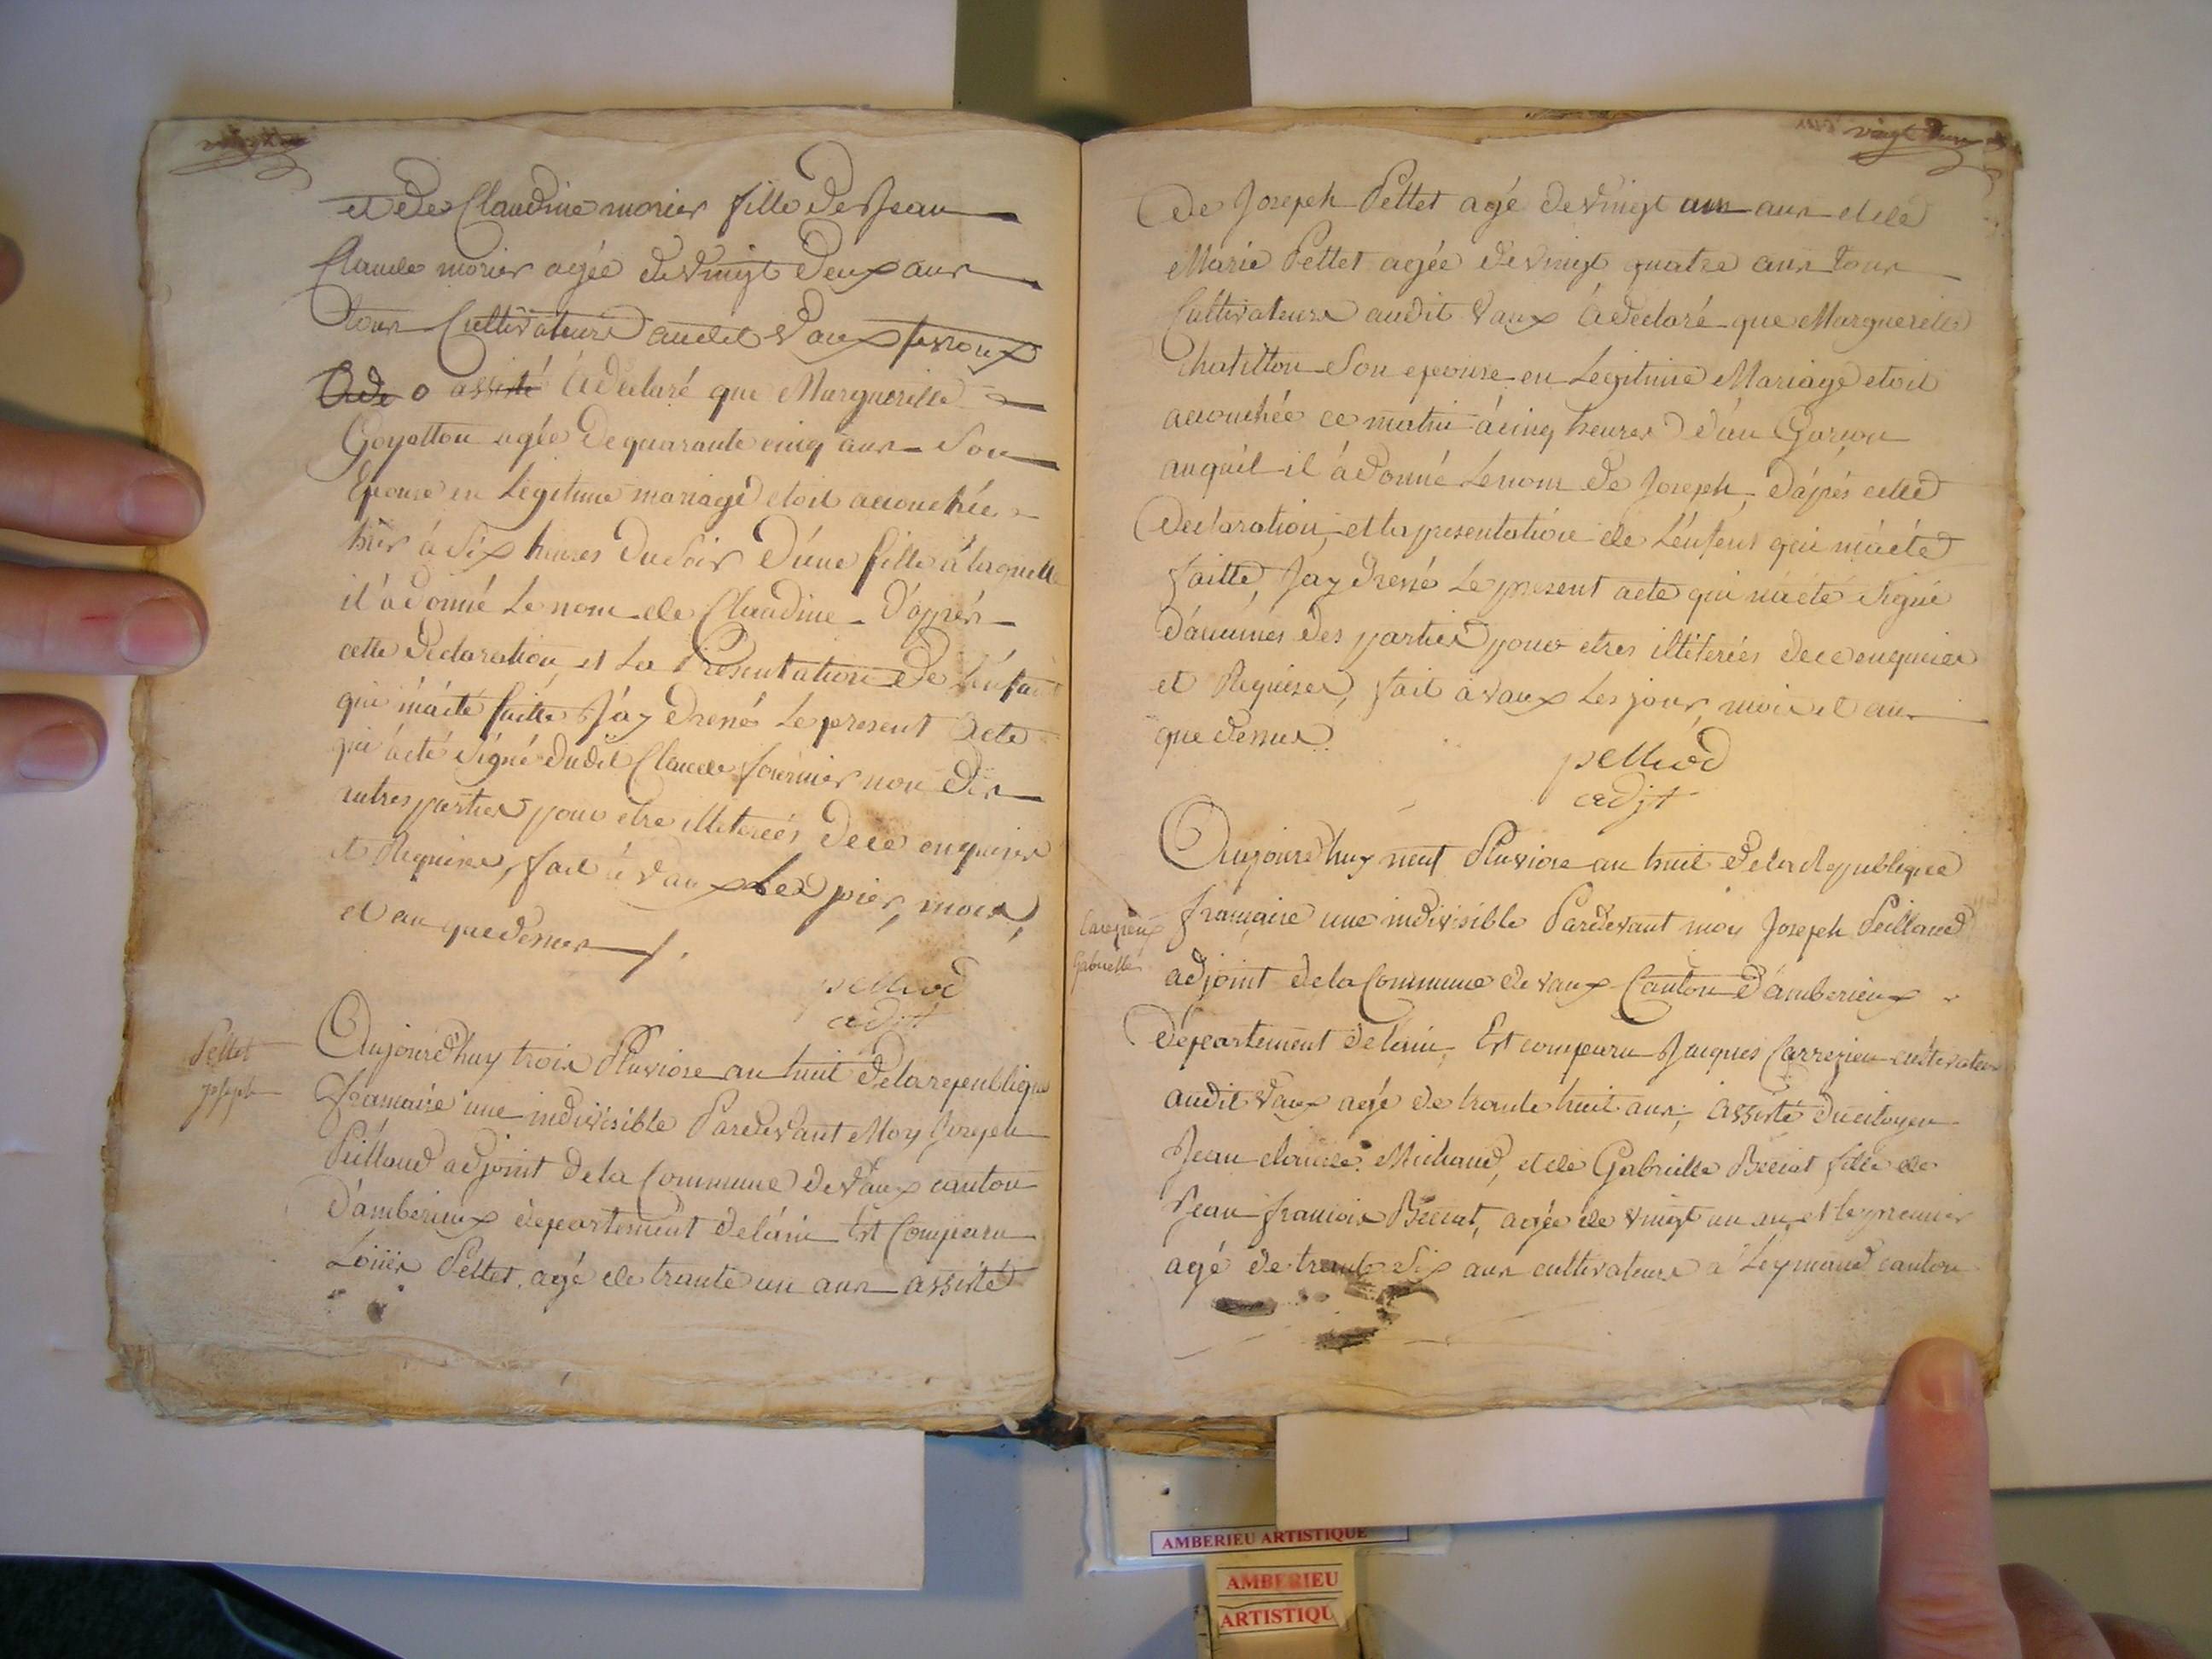 et de Claudine morier fille de Jean
Claude morier agée de vingt deux ans
tous Cultivateurs audit Vaux
assisté à declaré que Marguerille
Goyatton agée de quarante cinq ans Son
Epouse en Légitime mariage etoit accouchée
hier à Six heures du Soir d'une fille à laquelle
il à donné Le nom de Claudine d'après
cette declaration et La Présentation De L'énfan
qui m'àété faitte J'áy dressé Le present Acte
qui àété Signé dudit Claude fournier non des
autres parties pour etre illiterées de ce enquises
et Requises, fait à Vaux Les jour, mois,
et an que dessus
pelliod
adjt
Pellet
joseph
Aujourd'huy trois Pluviose an huit de la republique
francaise une indivisible Pardevant Moy Joseph
Peillaud adjoint de la Commune de Vaux canton
D'amberieux departement de láin Est Comparu
Loüis Pellet agé de trante un ans assisté
vingt deux
De Joseph Pellet agé de vingt un ans et de
Marie Pellet agée de vingt quatre ans tous
Cultivateurs audit Vaux à declaré que Marguerille
Chatillon Son epouse en Legitime Mariage etoit
accouchée ce matin à cinq heures d'un Garçon
auquél il à donné Le nom de Joseph, d'áprés cette
Declaration et la presentation de L'énfent qui m'àété
faitte, Jay dressé Le present acte qui n'àété Signé
d'aucunes des parties pour etres illiterées de ce enquises
et Requises, fait à Vaux Les jour, mois et an
que dessus
pelliod
adjt
Carrezieux
Gabrielle
Aujourd'huy neuf Pluviose an huit de la Republique
française une indivisible Pardevant moy Joseph Peillaud
adjoint de la Commune de Vaux Canton d'ámberieux
département de láin, Est comparu Jacques Carrezieu cultivateur
audit Vaux agé de trante huit ans, Assisté du citoyen
Jean claude Michaud, et de Gabrielle Béciat fille de
Jean francois Béciat, agée de vingt un an, et le premier
agé de trante Six ans cultivateurs a Leymend canton
AMBERIEU ARTISTIQUE
AMBERIEU
ARTISTIQU